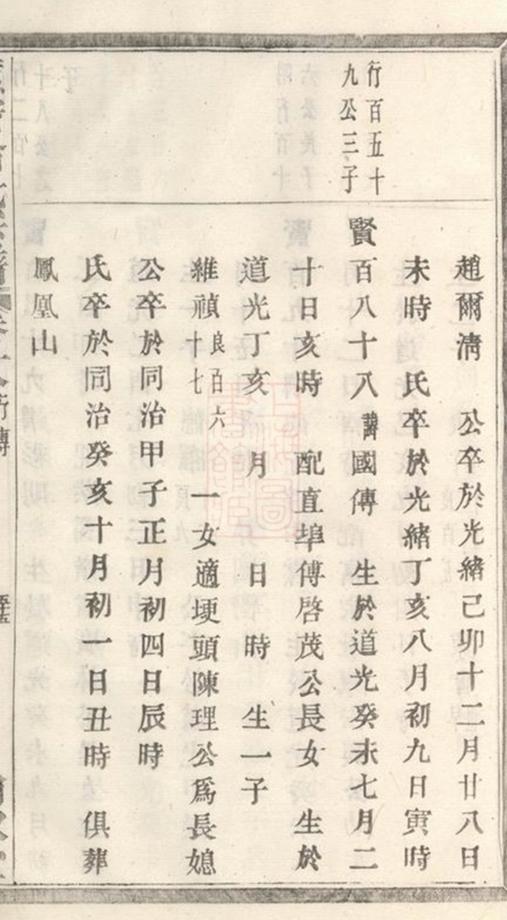 行百五十
九公三子
趙爾清　公卒於光緒己卯十二月廿八日
未時　氏卒於光緒丁亥八月初九日寅時
賢百八十八諱國傳　生於道光癸未七月二
十日亥時　配直埠傅啓茂公長女　生於
道光丁亥　月　日　時　生一子
維禎良百六十七　一女適埂頭陳理公爲長媳
公卒於同治甲子正月初四日辰時
氏卒於同治癸亥十月初一日丑時　俱葬
鳳凰山